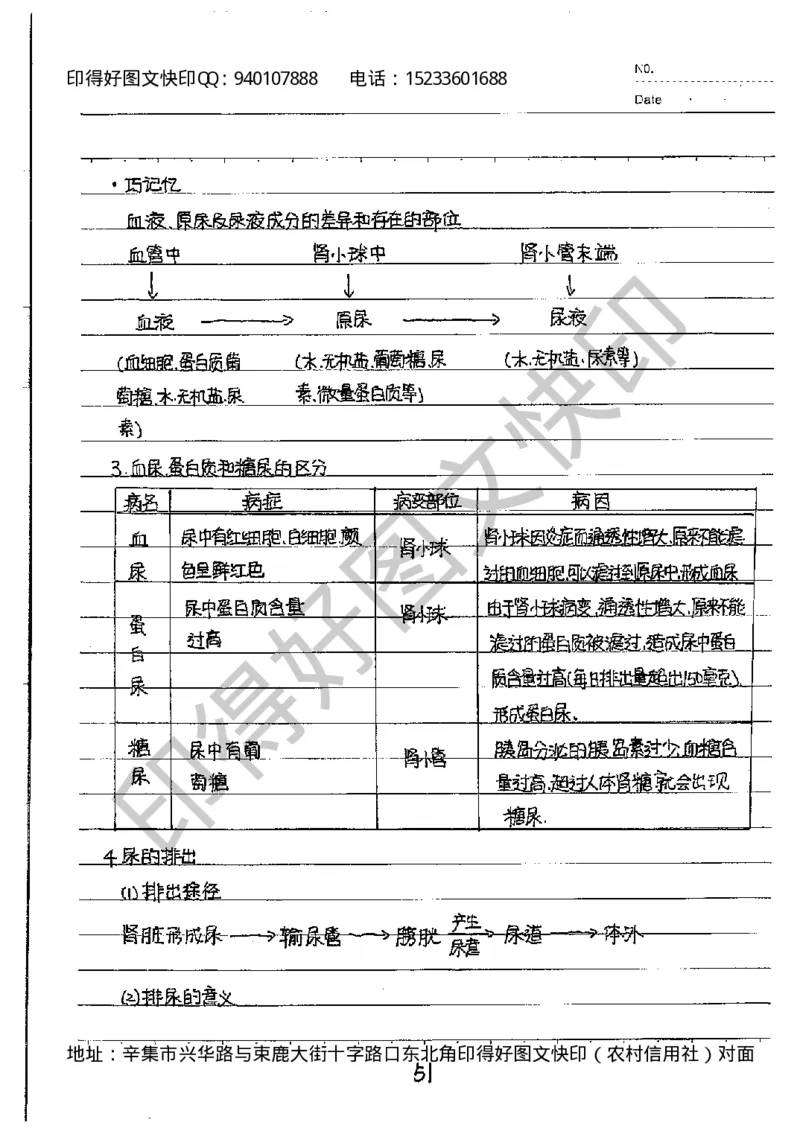 印得好图文快印QQ：940107888 电话：15233601688
NO.
Date
·巧记忆
血液、原尿及尿液成分的差异和存在的部位
血管中 肾小球中 肾小管末端
↓ ↓ ↓
血液 → 原尿 → 尿液
(血细胞.蛋白质.葡 (水.无机盐.葡萄糖.尿 (水.无机盐、尿素等)
萄糖.水.无机盐.尿 素.微量蛋白质等)
素)
3.血尿.蛋白质和糖尿的区分
病名 病症 病变部位 病因
血尿 尿中有红细胞.白细胞.颜 肾小球 肾小球因炎症而通透性增大,原来不能滤
色呈鲜红色 过的血细胞,可以滤过到原尿中,形成血尿
蛋白尿 尿中蛋白质含量 肾小球 由于肾小球病变,通透性增大,原来不能
过高 滤过的蛋白质被滤过,造成尿中蛋白
质含量过高(每日排出量超出150毫克),
形成蛋白尿。
糖尿 尿中有葡 肾小管 胰岛分泌的胰岛素过少,血糖含
萄糖 量过高,超过人体肾糖 就会出现
糖尿.
4.尿的排出
(1)排出途径
肾脏形成尿 → 输尿管 → 膀胱 产生尿意→ 尿道 → 体外
(2)排尿的意义
地址：辛集市兴华路与束鹿大街十字路口东北角印得好图文快印（农村信用社）对面
51
印得好图文快印